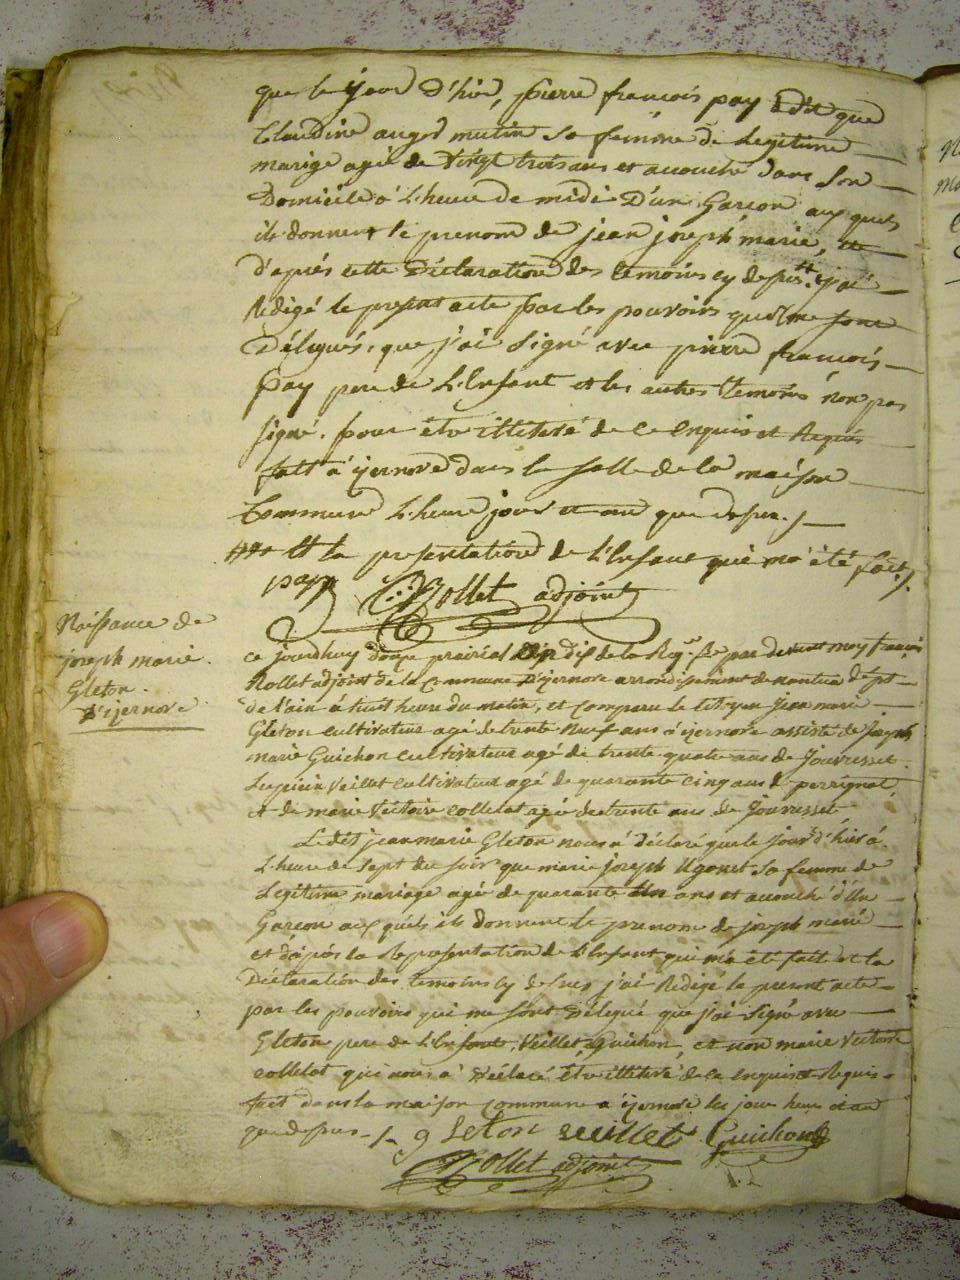 que le jour d'hier, pierre francois pay a dit que
Claudine auger mutin sa femme de Legitime
mariage agée de vingt trois ans et acouché dans Son
Domicile à L'heure de midi D'un Garcon aux quel
ils donnent le prenom de jean joseph marie, et
d'après cette Déclaration des temoins cy desus j'ai
Redigé le present acte par les pouvoirs qui me sont
Délegués, que j'ai Signé avec pierre francois
pay pere de L'Enfant et les autres temoins non pas
signé. pour être illiteré de ce Enquis et Requis
fait à jzernore dans la Salle de la maison
Commune L'heure jour et an que desus. /
et la presentation de L'Enfant qui ma été fait /.
pay Rollet adjoint
Naissance de
joseph marie
Gleton.
D'ijernore
ce jourdhuy douze prairial an dix de la Rep. fse par devant moy francois
Rollet adjoint de la Commune D'ijernore arrondissement de nantua Dépt
de l'ain à huit heure du matin, est comparu le Citoyen jean marie
Gleton cultivateur agé de trente neuf ans à ijernore assisté de joseph
marie Guichon cultivateur agé de trente quatre ans de Jouvresset
Lupicin Veillet cultivateur agé de quarante cinq ans de perrignat
et de marie Victoire collelat agé de trente ans de Jouvresset
Ledit jean marie Gleton nous à déclaré que le jour d'hier à
L'heure de Sept du Soir que marie joseph Ugonet Sa femme de
Legitime mariage agé de quarante un ans et acouché d'Un
Garcon aux quels ils donnent le prenom de joseph marie
et d'après la Representation de L'Enfant qui ma été fait et la
Déclaration des temoins cy desus j'ai Redigé le present acte
par les pouvoirs qui me sont Délegué que j'ai Signé avec
Gleton pere de L'Enfant, Veillet, Guichon, et non marie Victoire
collelat qui nous à Déclaré être illiteré de ce Enquis et Requis
fait dans la maison Commune à ijernore les jour heure et an
que desus /. gleton veillet Guichon
Rollet adjoint